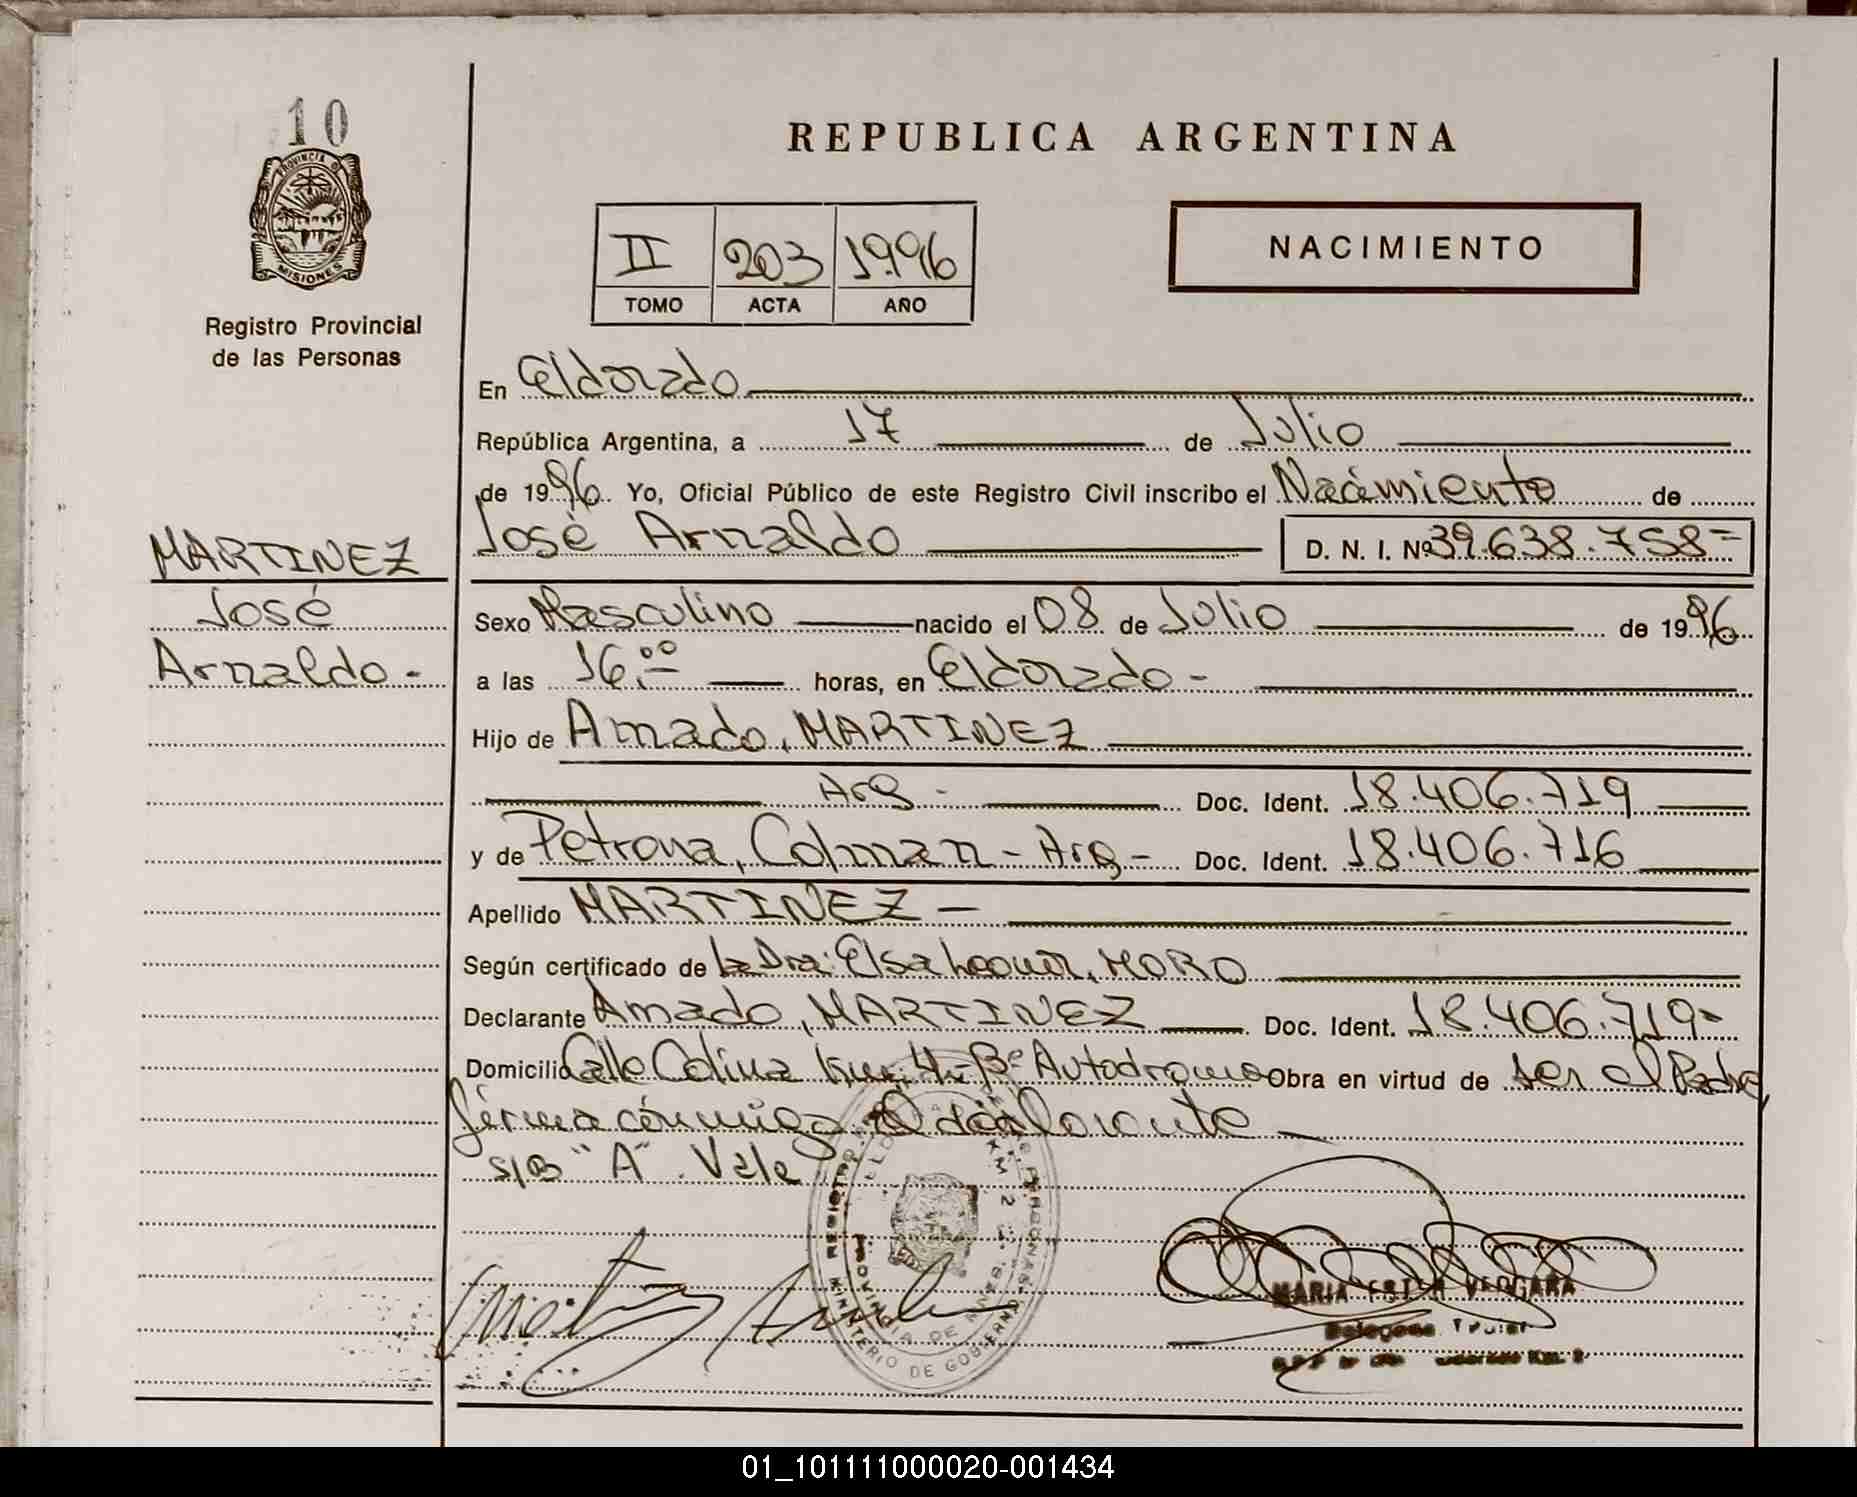 10
PROVINCIA DE
MISIONES
Registro Provincial
de las Personas
REPUBLICA ARGENTINA
II 203 1996
TOMO ACTA AÑO
NACIMIENTO
En Eldorado
República Argentina, a 17 de Julio
de 1996 Yo, Oficial Público de este Registro Civil inscribo el Nacimiento de
José Arnaldo D. N. I. Nº 39.638.758=
MARTINEZ
José
Arnaldo -
Sexo Masculino nacido el 08 de Julio de 1996
a las 16.00 horas, en Eldorado -
Hijo de Amado, MARTINEZ
Arg - Doc. Ident. 18.406.719
y de Petrona, Colman - Arg - Doc. Ident. 18.406.716
Apellido MARTINEZ -
Según certificado de la Dra: Elsa Leonor, MORO
Declarante Amado, MARTINEZ Doc. Ident. 18.406.719-
Domicilio Calle Colina km. 4 - Bº Autodromo Obra en virtud de ser el Padre,
firma conmigo el declarante
s/B "A". Vale
REGISTRO PERSONAS
KM 2
PROVINCIA DE
MINISTERIO DE GOBIERNO
MARIA ESTER VERGARA
Delegada Titular
Eldorado Km. 2
01_101111000020-001434